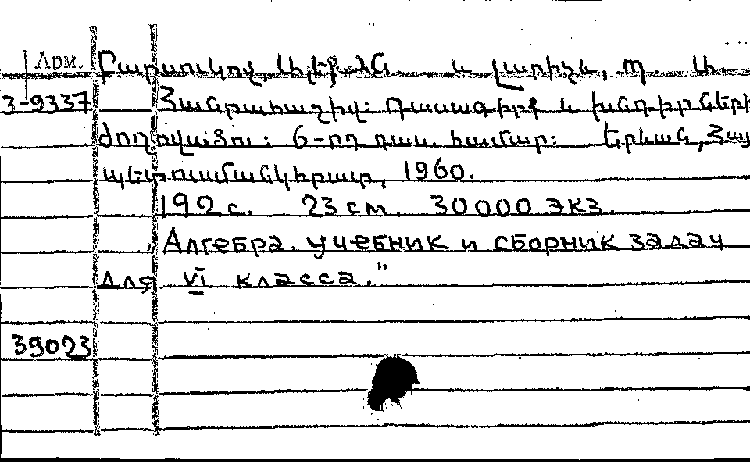 Арм. Բարսուկով, Ալեքս. Ն. և Լարիչև, Պ. Ա.
3-9337 Հանրահաշիվ: Դասագիրք և խնդիրների
ժողովածու: 6-րդ դաս. համար: Երևան, Հայ
պետուսմանկհրատ, 1960.
192 с. 23 см. 30000 экз.
Алгебра. учебник и сборник задач
для VI класса."
39023